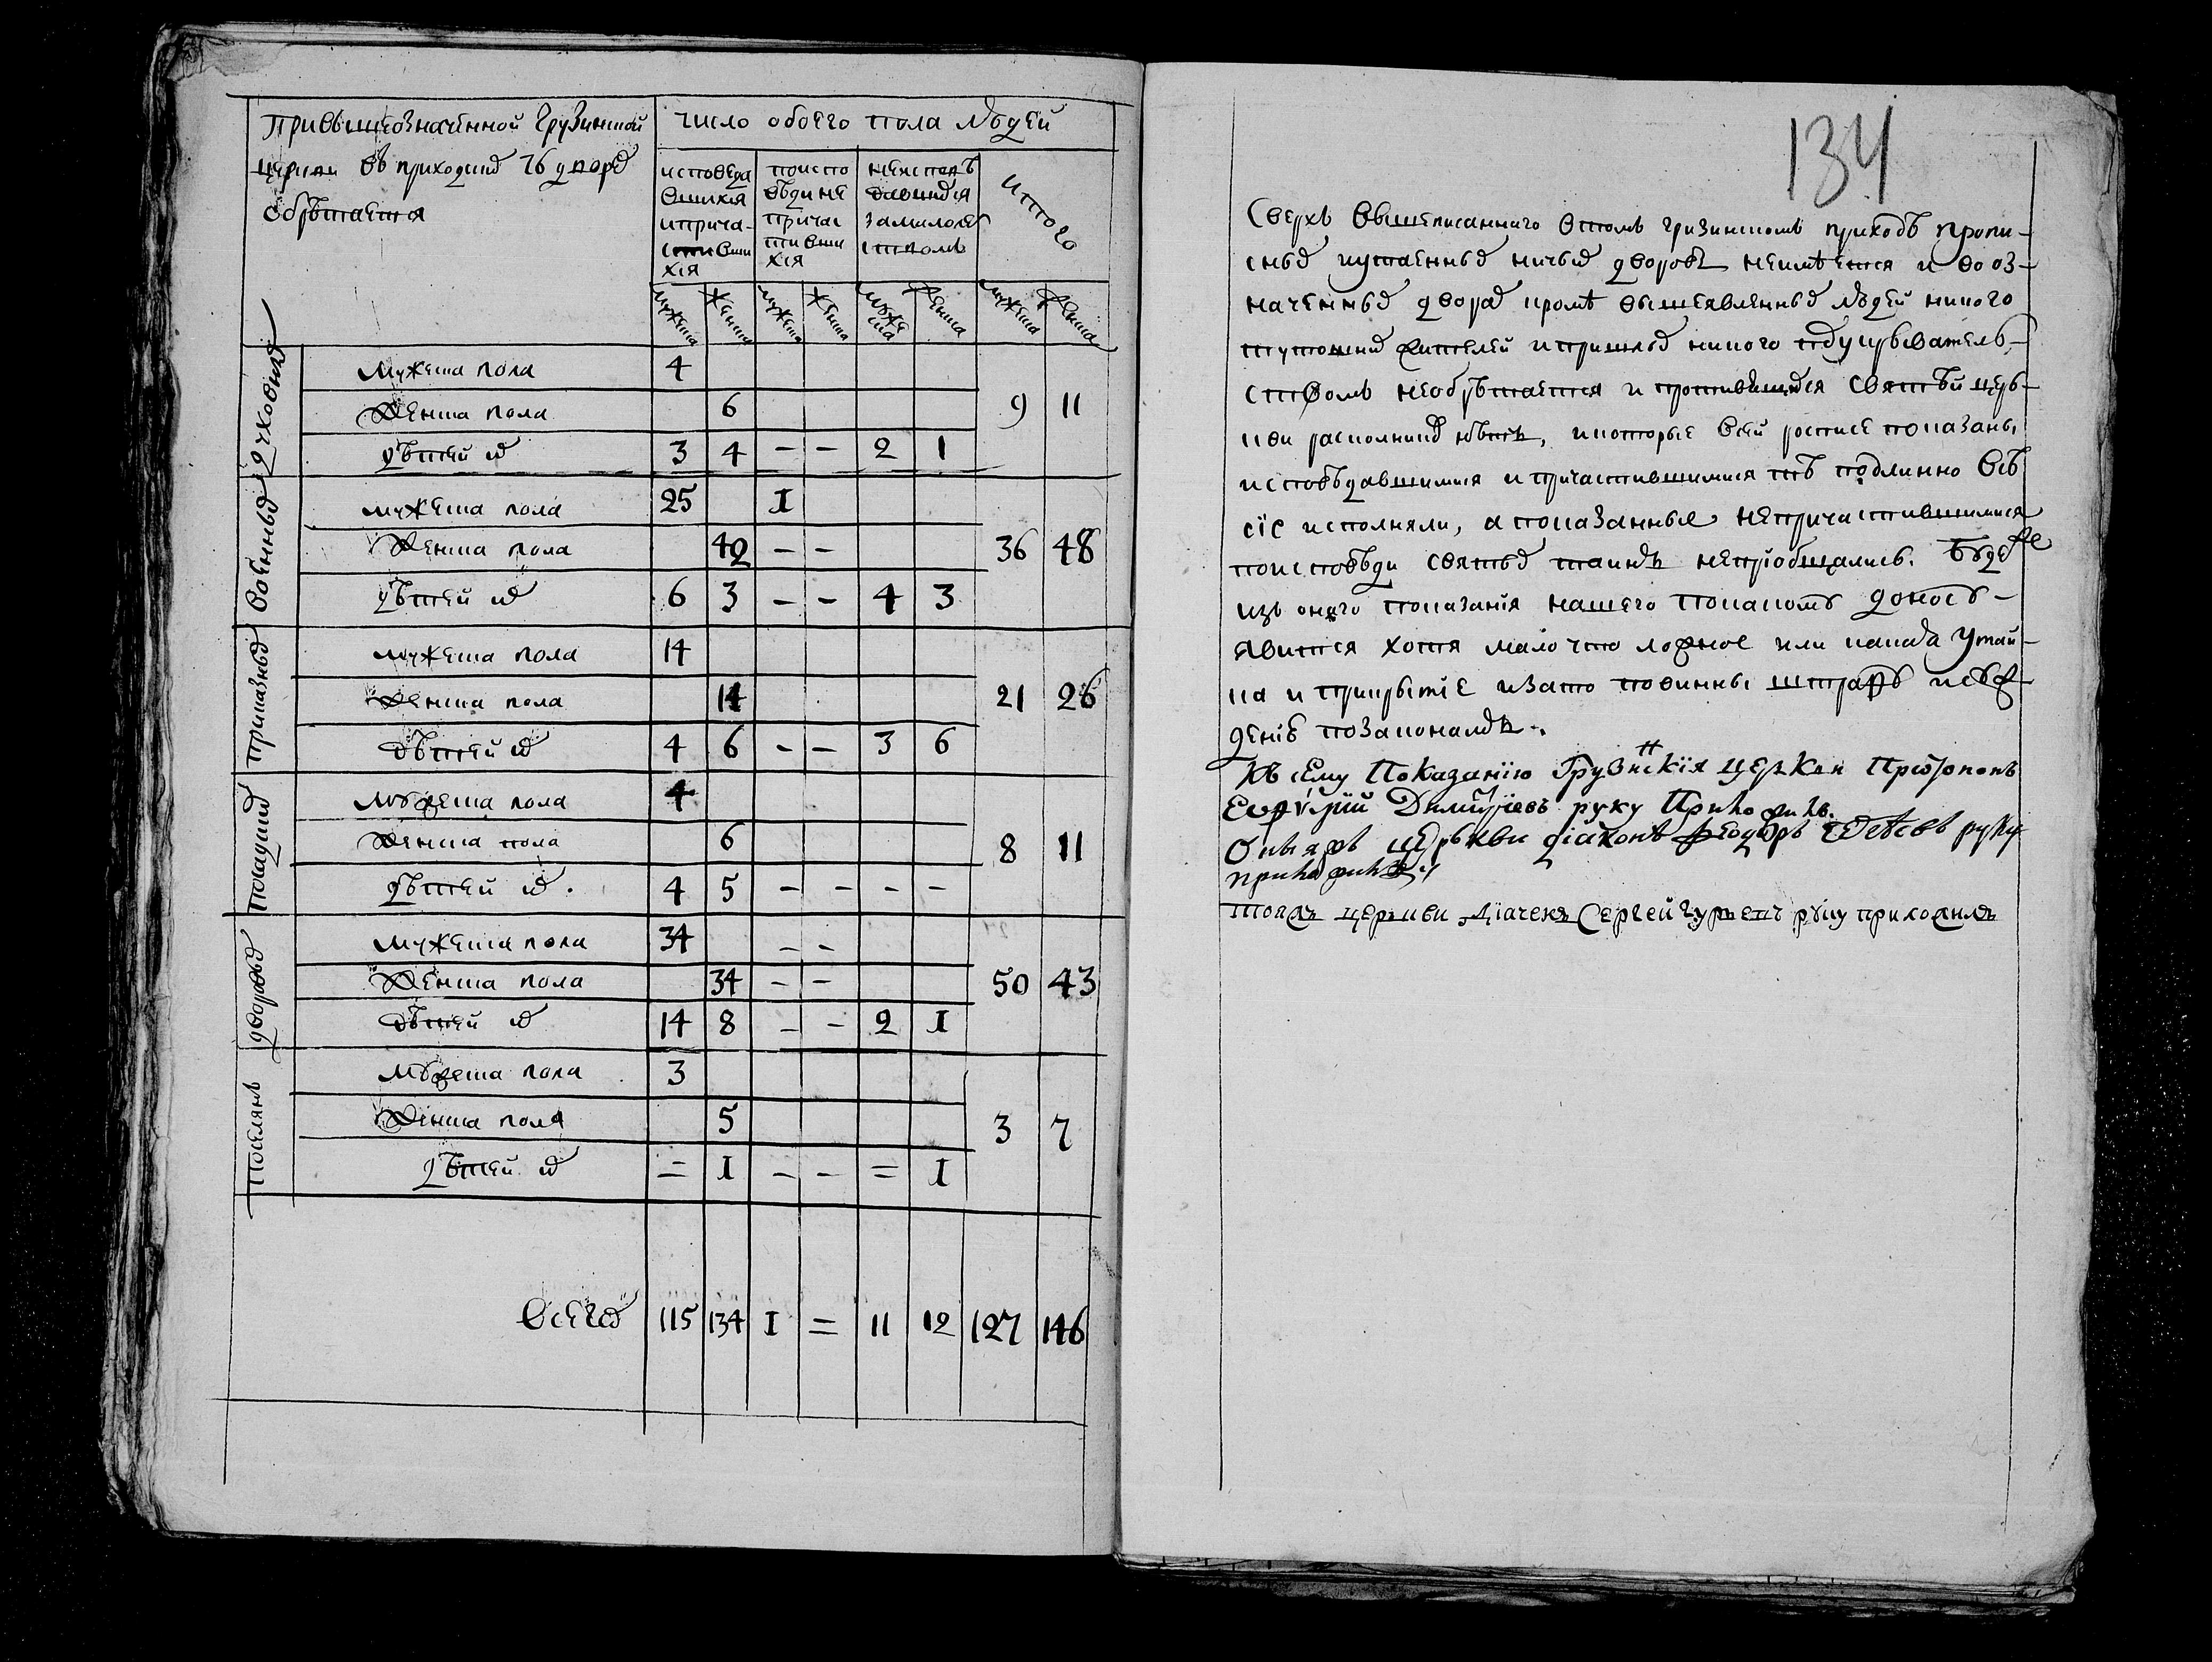 При вышеозначенной Грузинской
церкви въ приходскихъ 26 дворѣхъ
обрѣтается
число обоего пола людей
исповеда
вшихся
и прича-
стивши
хся
по испо
вѣди не
причас
тивши
хся
неисповѣ
давшихся
за малолѣт
ством
итого
мужеска женска мужеска женска муже
ска женска мужеска женска
духовныхъ
мужеска пола 4
женска пола 6 9 11
дѣтей их 3 4 - - 2 1
военныхъ
мужеска пола 25 1
женска пола 42 - - 36 48
дѣтей их 6 3 - - 4 3
приказныхъ
мужеска пола 14
женска пола 14 21 26
дѣтей их 4 6 - - 3 6
посадскихъ
мужеска пола 4
женска пола 6 8 11
дѣтей их 4 5 - - - -
дворовыхъ
мужеска пола 34 - -
женска пола 34 - - 50 43
дѣтей их 14 8 - - 2 1
поселянъ
мужеска пола 3
женска пола 5 3 7
дѣтей их = 1 - - = 1
всего 115 134 1 = 11 12 127 146
134
Сверхъ вышеписаннаго в томъ грузинскомъ приходѣ пропи-
сныхъ и утаенныхъ ничьихъ дворовъ неимѣется и во оз-
наченныхъ дворахъ кромѣ вышеявленныхъ людей никого
тутошнихъ жителей и пришлыхъ никого под укрывательс-
ством необрѣтается и противящихся святѣй цер-
кви раскольниковъ нѣтъ, и которые в сей росписе показаны
исповѣдавшимися и причастившимися тѣ подлинно всѣ
сiе исполняли, а показанные непричастившимися
по исповѣди святыхъ таинъ неприобщались. Буде же
изъ оного показанiя нашего по какому доносу
явится хотя мало что ложное или какая утай-
ка и прикрытiе и за то повинны штрафу
по законамъ.
Къ сему показанiю Грузинскiя церкви протопопъ
Георгiй Димитрiевъ руку приложилъ.
Оныя жъ церькви дiаконъ Феодоръ руку
приложилъ
Тояжъ церкви дiачекъ Сергей Гурьевъ руку приложилъ